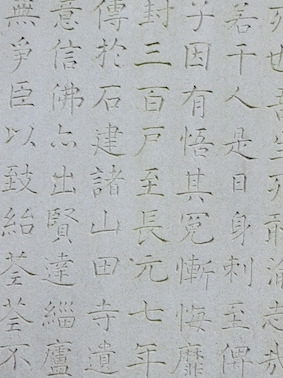 也吾生
若干人是日身刺至俾
子因有悟其冤慚悔靡
封三百戸至長元七年
傳於石建諸山田寺遺
意信佛亦出賢達緇廬
無爭臣以致紿荃荃不